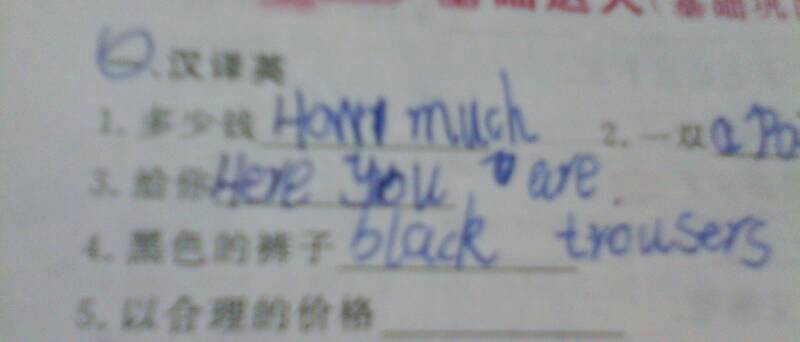 一、汉译英
1. 多少钱 How much 2. 一双 a Pai
3. 给你 Here you are.
4. 黑色的裤子 black trousers
5. 以合理的价格